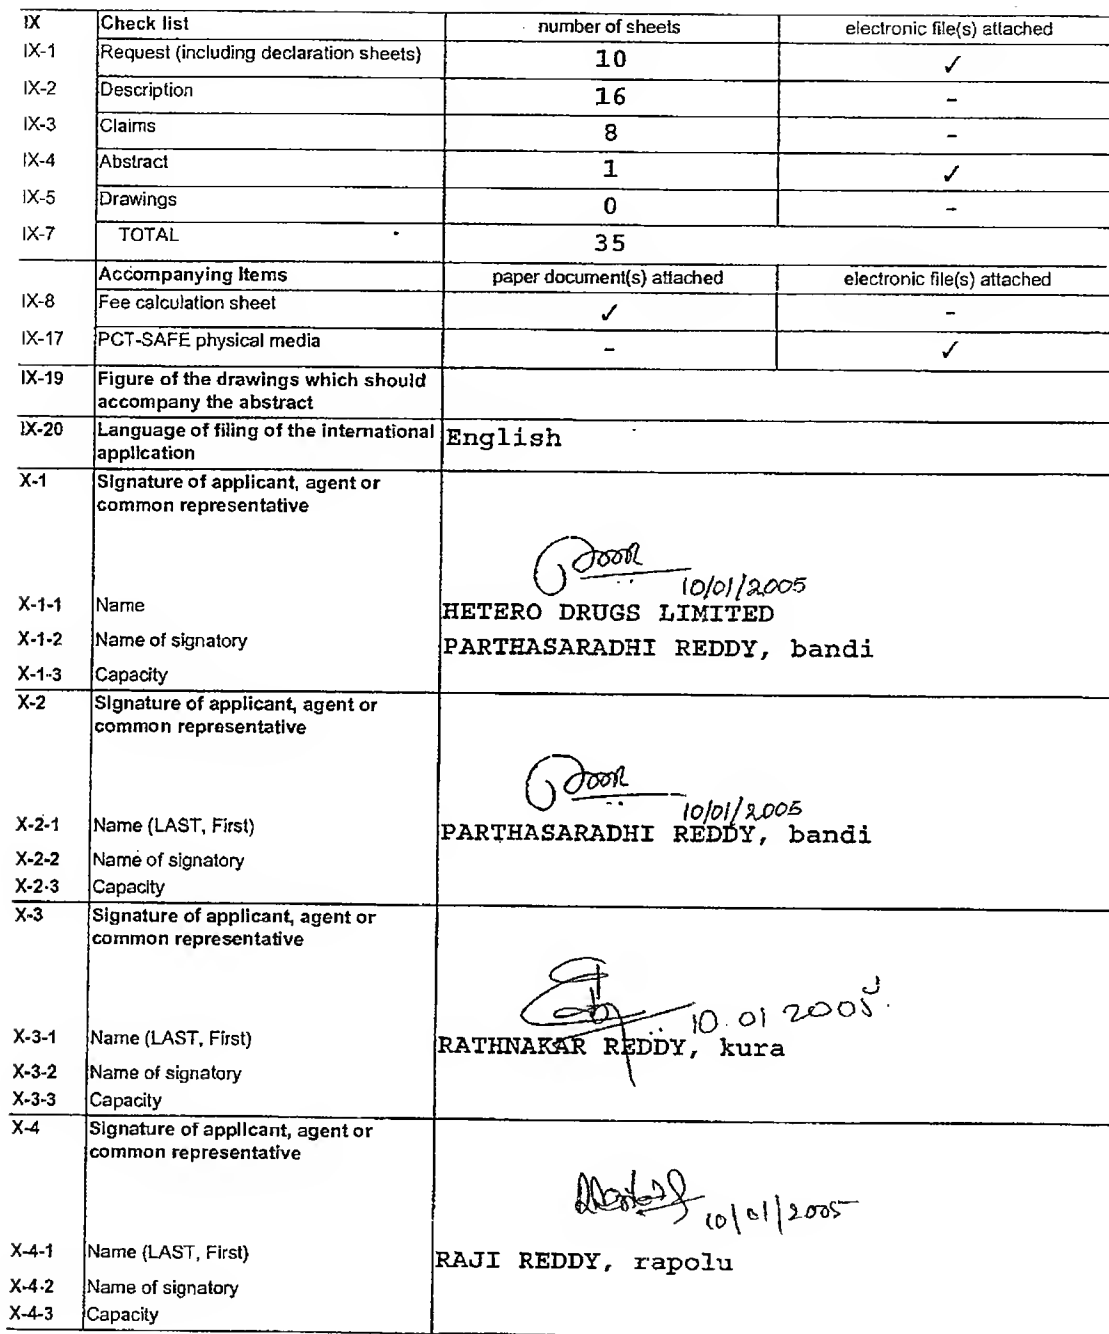 IX Check list number of sheets electronic file(s) attached
IX-1 Request (including declaration sheets) 10 ✓
IX-2 Description 16 -
IX-3 Claims 8 -
IX-4 Abstract 1 ✓
IX-5 Drawings 0 -
IX-7 TOTAL 35
Accompanying Items paper document(s) attached electronic file(s) attached
IX-8 Fee calculation sheet ✓ -
IX-17 PCT-SAFE physical media - ✓
IX-19 Figure of the drawings which should
accompany the abstract
IX-20 Language of filing of the international English
application
X-1 Signature of applicant, agent or
common representative
10/01/2005
X-1-1 Name HETERO DRUGS LIMITED
X-1-2 Name of signatory PARTHASARADHI REDDY, bandi
X-1-3 Capacity
X-2 Signature of applicant, agent or
common representative
10/01/2005
X-2-1 Name (LAST, First) PARTHASARADHI REDDY, bandi
X-2-2 Name of signatory
X-2-3 Capacity
X-3 Signature of applicant, agent or
common representative
10.01 2005
X-3-1 Name (LAST, First) RATHNAKAR REDDY, kura
X-3-2 Name of signatory
X-3-3 Capacity
X-4 Signature of applicant, agent or
common representative
10/01/2005
X-4-1 Name (LAST, First) RAJI REDDY, rapolu
X-4-2 Name of signatory
X-4-3 Capacity